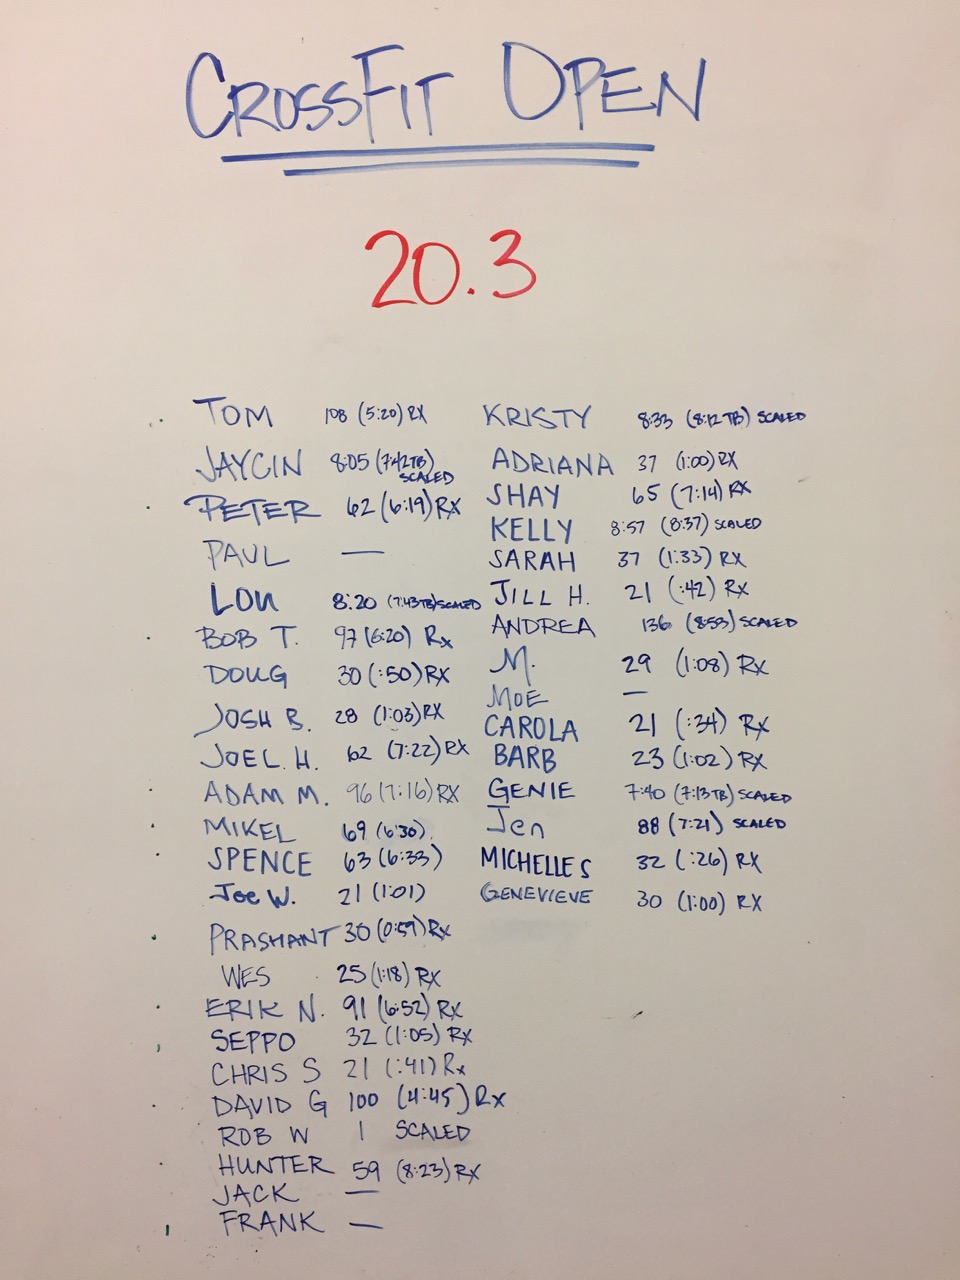 CROSSFIT OPEN
20.3
TOM 108 (5:20) RX
JAYCIN 8:05 (7:42TB) SCALED
PETER 62 (6:19) RX
PAUL —
LOU 8:20 (7:43TB) SCALED
BOB T. 97 (6:20) Rx
DOUG 30 (:50) RX
JOSH B. 28 (1:03) RX
JOEL H. 62 (7:22) RX
ADAM M. 96 (7:16) RX
MIKEL 69 (6:30)
SPENCE 63 (6:33)
Joe W. 21 (1:01)
PRASHANT 30 (0:59) Rx
WES 25 (1:18) RX
ERIK N. 91 (6:52) RX
SEPPO 32 (1:05) RX
CHRIS S 21 (:41) Rx
DAVID G 100 (4:45) Rx
ROB W 1 SCALED
HUNTER 59 (8:23) RX
JACK —
FRANK —
KRISTY 8:33 (8:12 TB) SCALED
ADRIANA 37 (1:00) RX
SHAY 65 (7:14) RX
KELLY 8:57 (8:37) SCALED
SARAH 37 (1:33) RX
JILL H. 21 (:42) RX
ANDREA 136 (8:53) SCALED
M. 29 (1:08) RX
MOE —
CAROLA 21 (:34) RX
BARB 23 (1:02) RX
GENIE 7:40 (7:13TB) SCALED
Jen 88 (7:21) SCALED
MICHELLE S 32 (:26) RX
GENEVIEVE 30 (1:00) RX